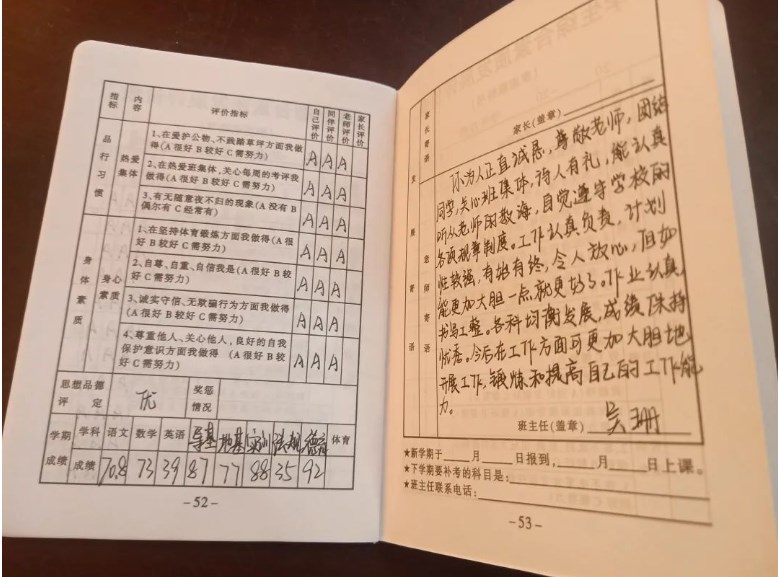 指标 内容 评价指标 自己评价 同伴评价 老师评价 家长评价
品行习惯 热爱集体
1、在爱护公物、不践踏草坪方面我做
得(A很好 B较好 C需努力) A A A
2、在热爱班集体、关心每周的考评我
做得(A很好 B较好 C需努力) A A A
3、有无随意夜不归的现象(A没有 B
偶尔有 C经常有) A A A
身体素质 身心素质
1、在坚持体育锻炼方面我做得(A很
好 B较好 C需努力) A A A
2、自尊、自重、自信我是(A很好 B较
好 C需努力) A A A
3、诚实守信、无欺骗行为方面我做得
(A很好 B较好 C需努力) A A A
4、尊重他人、关心他人,良好的自我
保护意识方面我做得 (A很好 B较
好 C需努力) A A A
思想品德评定 优 奖惩情况
学期成绩 学科 语文 数学 英语 导基 地基 实训 法规 德育 体育
成绩 70.8 73 39 87 77 88 35 92
-52-
家长寄语
家长(盖章)
发展寄语
老师寄语
你为人正直诚恳,尊敬老师,团结
同学,关心班集体,待人有礼,能认真
听从老师的教诲,自觉遵守学校的
各项规章制度。工作认真负责,计划
性较强,有始有终,令人放心,但如
能更加大胆一点就更好了。作业认真,
书写工整,各科均衡发展,成绩保持
优秀。今后在工作方面可更加大胆地
开展工作,锻炼和提高自己的工作能
力。
班主任(盖章) 吴珊
★新学期于____月____日报到,____月____日上课。
★下学期要补考的科目是:
★班主任联系电话:
-53-